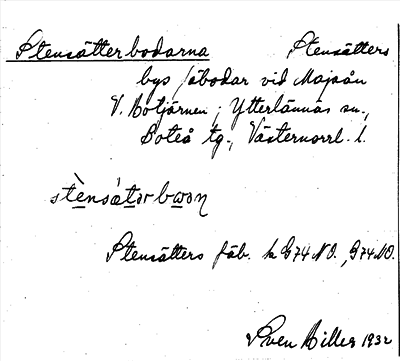 Stensätterbodarna Stensätters
bys fäbodar vid Majaån
V. Botjärnen; Ytterlännäs sn.,
Boteå tg., Västernorrl. l.
stènsátər bωdn̥
Stensätters fäb. k G74 NO., G74 NO.
Sven Hiller 1932